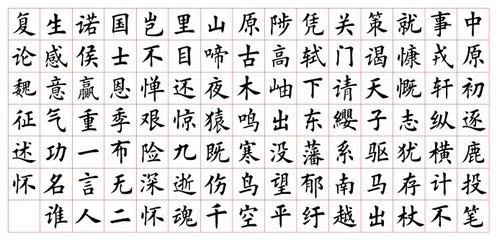 中原初逐鹿投笔
事戎轩纵横计不
就慷慨志犹存杖
策谒天子驱马出
关门请纓系南越
凭轼下东藩郁纡
陟高岫出没望平
原古木鸣寒鸟空
山啼夜猿既伤千
里目还惊九逝魂
岂不惮艰险深怀
国士恩季布无二
诺侯赢重一言人
生感意气功名谁
复论魏征述怀